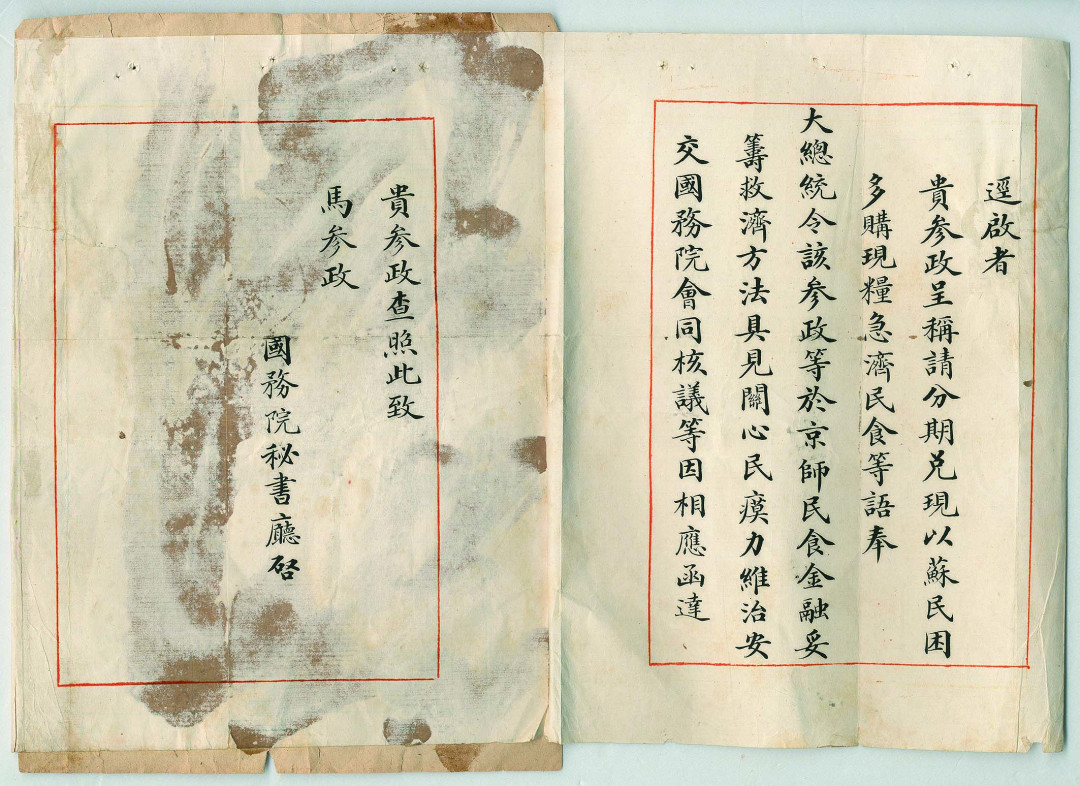 逕啟者
貴参政呈稱請分期兌現以蘇民困
多購現糧急濟民食等語奉
大總統令該参政等於京師民食金融妥
籌救濟方法具見關心民瘼力維治安
交國務院會同核議等因相應函達
貴参政查照此致
馬参政
國務院秘書廳啓